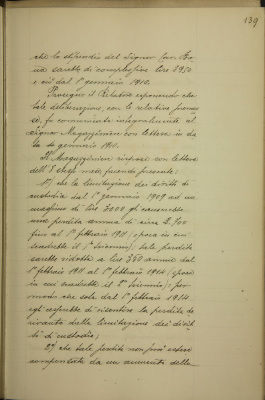 139
che lo stipendio del Signor
sarebbe di complessive lire 3950
e ciò dal 1° gennaio 1910.
Prosegue il Relatore esponendo che
tale deliberazione, con le relative
se, fu comunicata integralmente al
Signor Magazziniere con lettera in da
ta 4 gennaio 1911.
Il Magazziniere rispose con lettera
dell' 8 stesso mese facendo presente:
1°) che la limitazione dei diritti di
custodia dal 1° gennaio 1909 ad un
massimo di Lire 3000 gli
una perdita annua di circa £ 700
fino al 1° febbraio 1911 (epoca in cui
scadrebbe il 1° biennio); tale perdita
sarebbe ridotta a lire 350 annue dal
1° febbraio 1911 al 1° febbraio 1914 (epoca
in cui scadrebbe il 2° biennio); per
modo che solo dal 1° febbraio 1914
egli cesserebbe di risentire la perdita de
rivante dalla limitazione dei dirit
ti di custodia;
2°) che tale perdita non può essere
compensata da un aumento dello